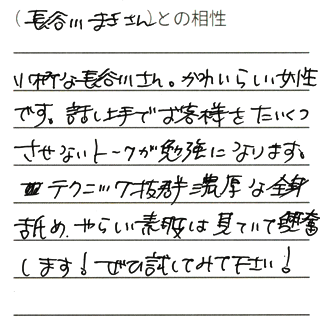 (長谷川まきさん)との相性
小柄な長谷川さん。かわいらしい女性
です。話し上手でお客様をたいくつ
させないトークが勉強になります。
テクニック抜群 濃厚な全身
舐め、やらしい素股は見ていて興奮
します！ぜひ試してみて下さい！